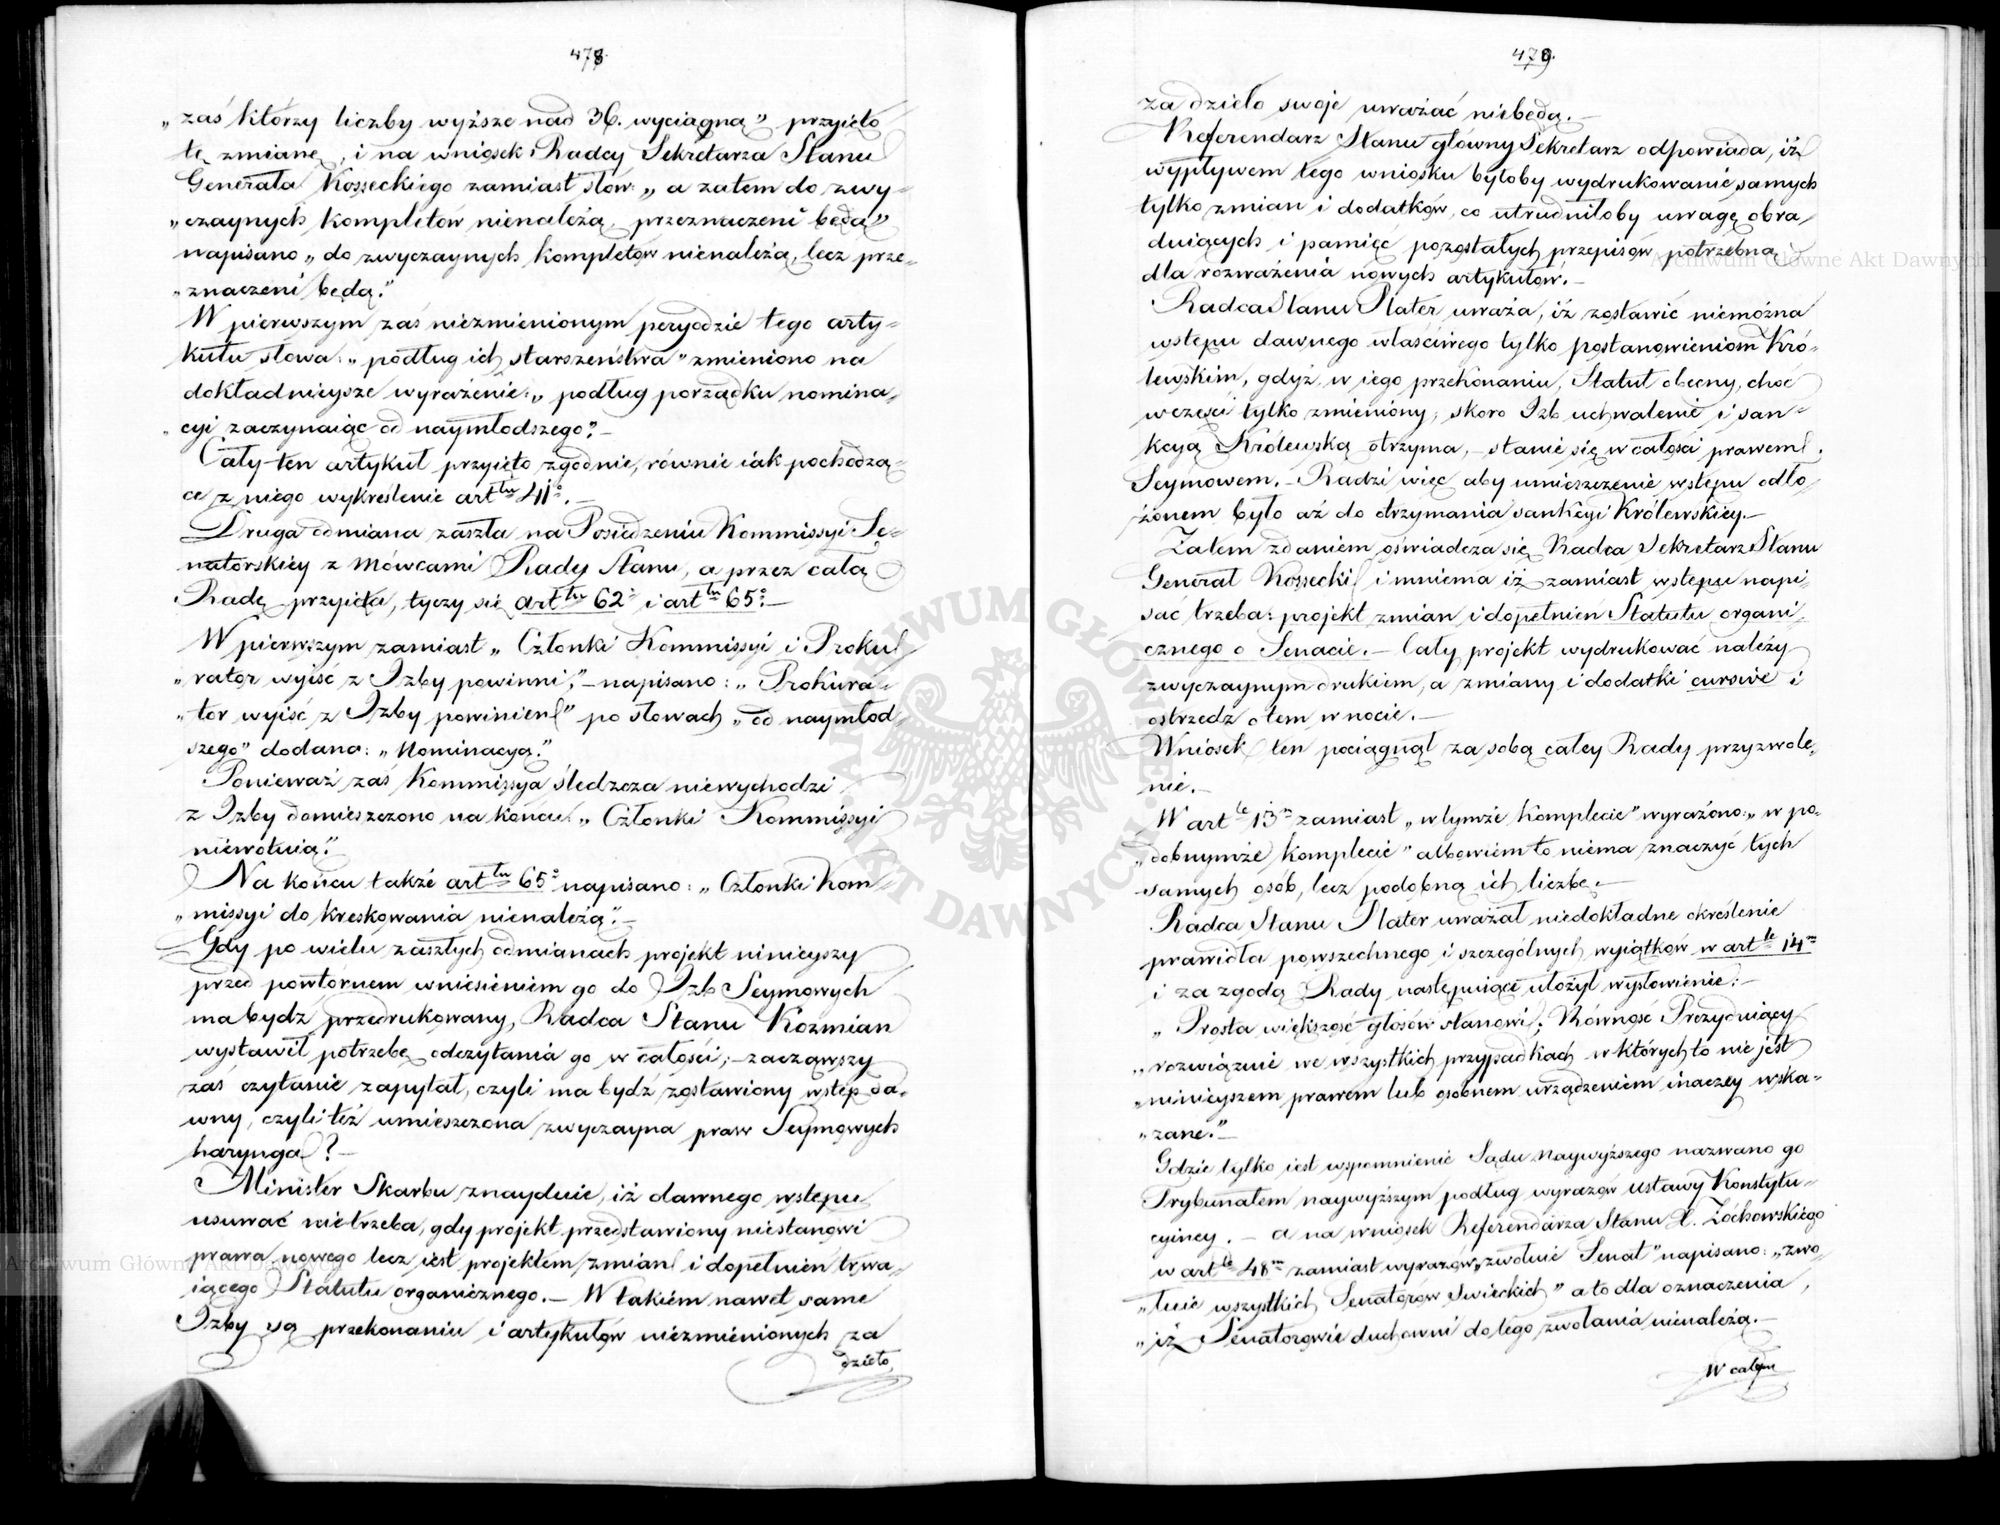 478.
„zaś którzy liczby wyższe nad 36. wyciągną” przyięto
tę zmianę, i na wniosek Radcy Sekretarza Stanu
Generała Kosseckiego zamiast słów: „a zatem do zwy-
„czaynych kompletów nienależą, przeznaczeni będą”
napisano „do zwyczaynych kompletów nienależą, lecz prze-
„znaczeni będą.”
W pierwszym zaś niezmienionym peryodzie tego arty-
kułu słowa: „podług ich starszeństwa” zmieniono na
dokładnieysze wyrażenie: „podług porządku nomina-
„cyi zaczynaiąc od naymłodszego”.–
Cały ten artykuł przyięto zgodnie, równie iak pochodzą-
ce z niego wykreślenie artłu 41o.–
Druga odmiana zaszła na Posiedzeniu Kommissyi Se-
natorskiey z Mówcami Rady Stanu, a przez całą
Radę przyięta, tyczy się artłu 62o i artłu 65o.–
W pierwszym zamiast „Członki Kommissyi i Proku-
„rator wyiść z Izby powinni,”– napisano: „Prokura-
„tor wyiść z Izby powinien” po słowach „od naymłod-
szego” dodano: „Nominacyą.”
Ponieważ zaś Kommissya śledzcza niewychodzi
z Izby domieszczono na końcu: „Członki Kommissyi
niewotuią.”
Na końcu także artłu 65o napisano: „Członki Kom-
„missyi do kreskowania nienależą”.–
Gdy po wielu zaszłych odmianach projekt ninieyszy
przed powtórnem wniesieniem go do Izb Seymowych
ma bydz przedrukowany, Radca Stanu Kozmian
wystawił potrzebę odczytania go w całości;– zacząwszy
zaś czytanie zapytał, czyli ma bydź zostawiony wstęp da-
wny, czyli też umieszczona zwyczayna praw Seymowych
harynga?–
Minister Skarbu znayduie, iż dawnego wstępu
usuwać nietrzeba, gdy projekt przedstawiony niestanowi
prawa nowego lecz iest projektem zmian i dopełnień trwa-
iącego Statutu organicznego.– W takiem nawet same
Izby są przekonaniu i artykułów niezmienionych za
dzieło
479.
za dzieło swoje uważać niebędą.–
Referendarz Stanu główny Sekretarz odpowiada, iż
wypływem tego wniosku byłoby wydrukowanie samych
tylko zmian i dodatków, co utrudniłoby uwagę obra-
duiących i pamięć pozostałych przepisów potrzebną
dla rozważenia nowych artykułów.–
Radca Stanu Plater uważa, iż zostawić niemożna
wstępu dawnego właściwego tylko postanowieniom Kró-
lewskim, gdyż w iego przekonaniu, Statut obecny, choć
w części tylko zmieniony, skoro Izb uchwalenie i san-
kcyą Królewską otrzyma,– stanie się w całości prawem
Seymowem.– Radzi więc aby umieszczenie wstępu odło-
żonem było aż do otrzymania sankcyi Królewskiey.–
Zatem zdaniem oświadcza się Radca Sekretarz Stanu
Generał Kossecki i mniema iż zamiast wstępu napi-
sać trzeba: projekt zmian i dopełnień Statutu organi-
cznego o Senacie.– Cały projekt wydrukować należy
zwyczaynym drukiem, a zmiany i dodatki cursive i
ostrzedz o tem w nocie.–
Wniosek ten pociągnął za sobą całey Rady przyzwole-
nie.–
W artle 13m zamiast „w tymże komplecie” wyrażono: „w po-
„dobnymże komplecie” albowiem to niema znaczyć tych
samych osób, lecz podobną ich liczbę.–
Radca Stanu Plater uważał niedokładne określenie
prawidła powszechnego i szczególnych wyiątków w artle 14m
i za zgodą Rady następuiące ułożył wysłowienie:–
„Prosta większość głosów stanowi; Równość Prezyduiący
„rozwiązuie we wszystkich przypadkach w których to nie jest
„ninieyszem prawem lub osobnem urządzeniem inaczey wska-
„zane.”–
Gdzie tylko iest wspomnienie Sądu Naywyższego nazwano go
Trybunałem naywyższym podług wyrazów Ustawy Konstytu-
cyiney.– a na wniosek Referendarza Stanu X. Żochowskiego
w artle 48m zamiast wyrazów „zwołuie Senat” napisano: „zwo-
„łuie wszystkich Senatorów Swieckich” a to dla oznaczenia,
„iż Senatorowie duchowni do tego zwołania nienależą.–
W całym
ARCHIWUM GŁÓWNE AKT DAWNYCH
Archiwum Główne Akt Dawnych
Archiwum Główne Akt Dawnych